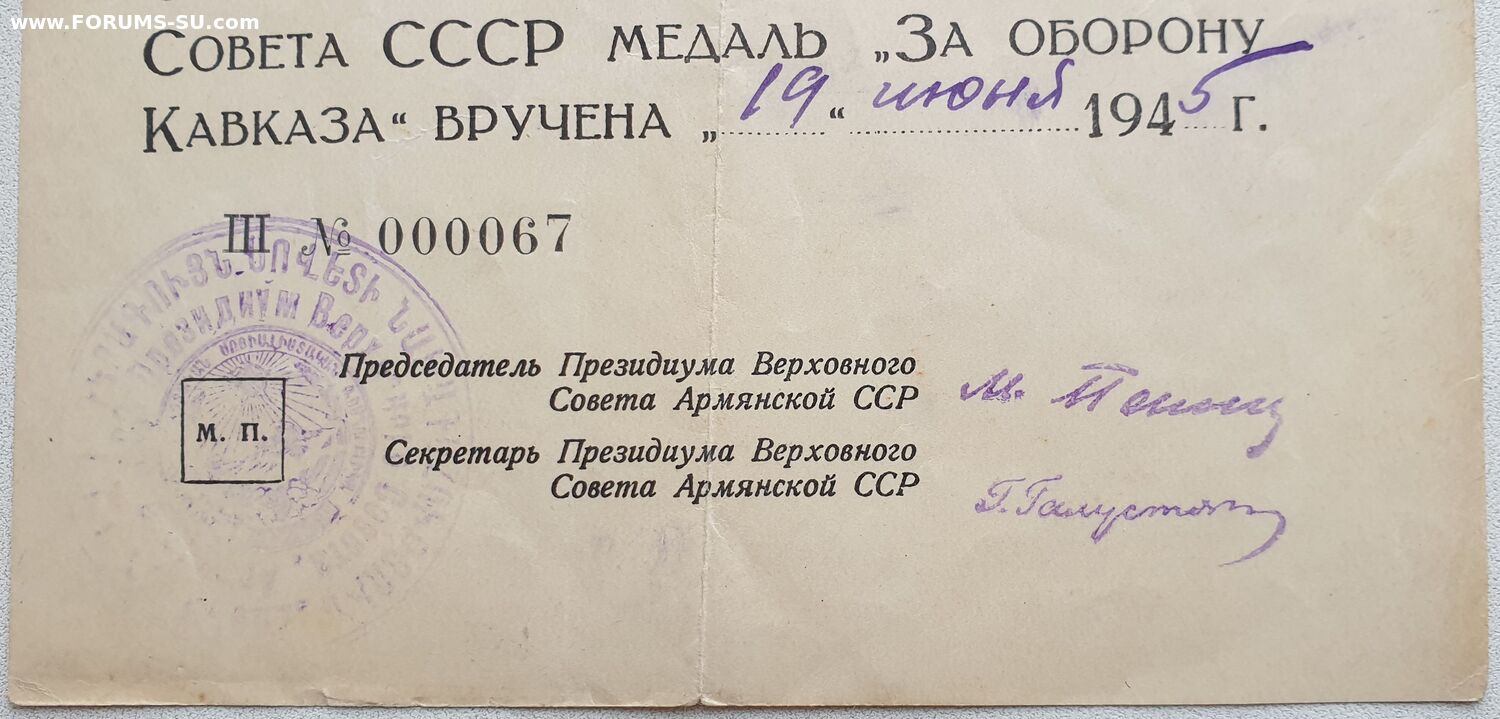 www.FORUMS-SU.com
Совета СССР медаль „За оборону
Кавказа“ вручена „19“ июня 1945 г.
III № 000067
Председатель Президиума Верховного
Совета Армянской ССР
М. П.
Секретарь Президиума Верховного
Совета Армянской ССР
Г. Галустян